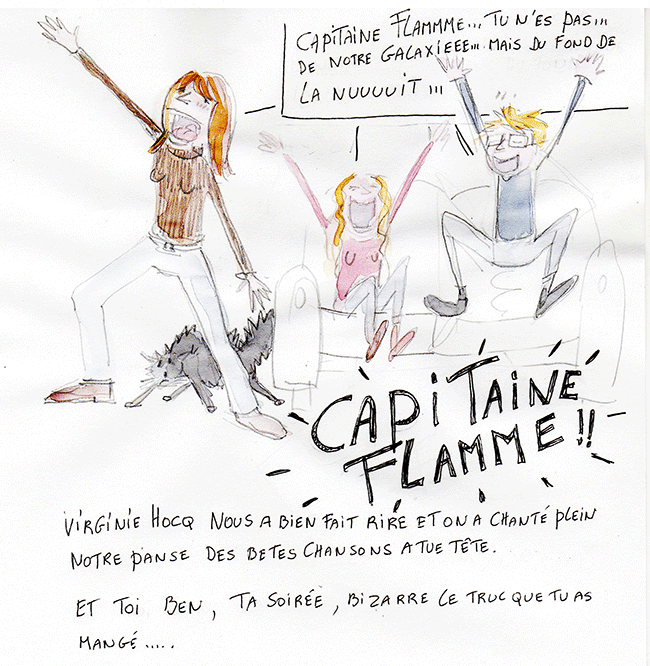 CAPITAINE FLAMMME... TU N'ES PAS...
DE NOTRE GALAXIEEE... MAIS DU FOND DE
LA NUUUUIT...
CAPITAINE
FLAMME!!
VIRGINIE HOCQ NOUS A BIEN FAIT RIRE ET ON A CHANTÉ PLEIN
NOTRE PANSE DES BETES CHANSONS A TUE TÊTE.
ET TOI BEN, TA SOIRÉE, BIZARRE LE TRUC QUE TU AS
MANGÉ.....